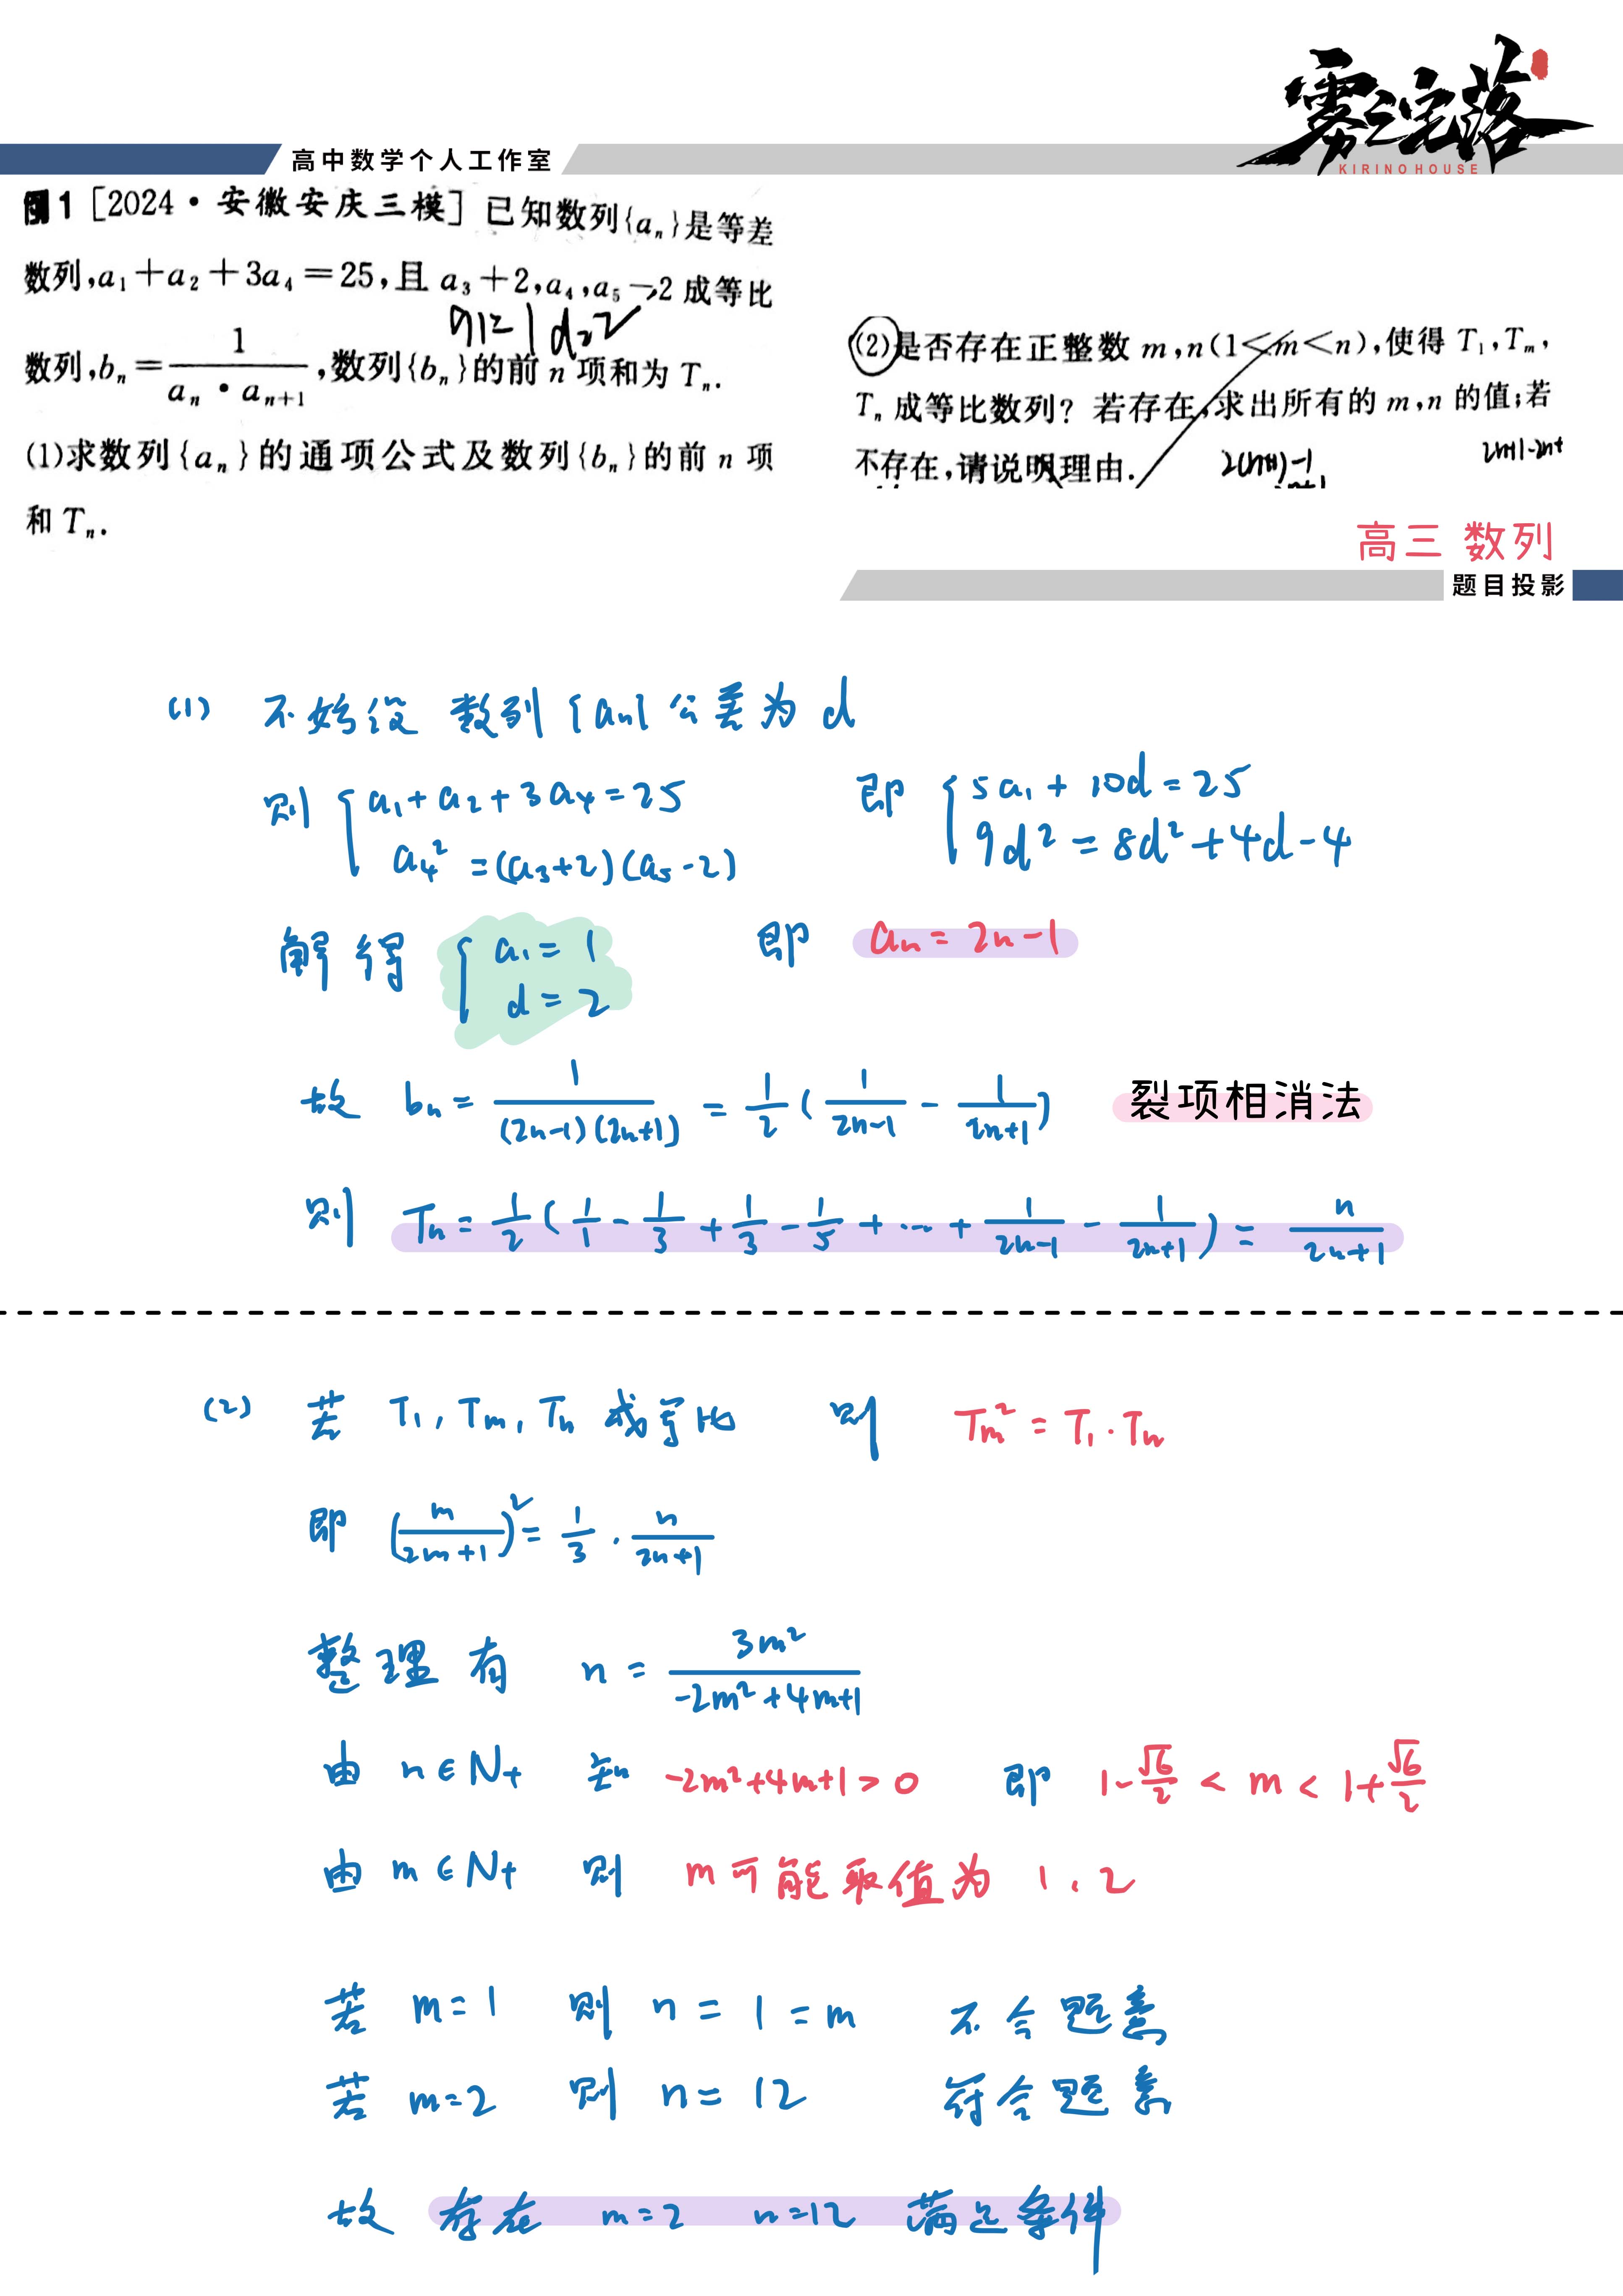 雾之宅落
KIRINO HOUSE
高中数学个人工作室
例1 [2024·安徽安庆三模] 已知数列{aₙ}是等差
数列,a₁+a₂+3a₄=25,且 a₃+2,a₄,a₅-2 成等比
a1=1 d=2
数列,bₙ=1/(aₙ·aₙ₊₁),数列{bₙ}的前 n 项和为 Tₙ.
(1)求数列{aₙ}的通项公式及数列{bₙ}的前 n 项
和 Tₙ.
(2)是否存在正整数 m,n(1<m<n),使得 T₁,Tₘ,
Tₙ 成等比数列?若存在,求出所有的 m,n 的值;若
不存在,请说明理由.
2(n+1)-1
高三 数列
题目投影
(1) 不妨设 数列{aₙ}公差为 d
则 { a₁+a₂+3a₄=25 即 { 5a₁+10d=25
a₄²=(a₃+2)(a₅-2) 9d²=8d²+4d-4
解得 { a₁=1 即 aₙ=2n-1
d=2
故 bₙ=1/((2n-1)(2n+1)) = 1/2(1/(2n-1) - 1/(2n+1)) 裂项相消法
则 Tₙ=1/2(1/1-1/3+1/3-1/5+…+1/(2n-1)-1/(2n+1))=n/(2n+1)
(2) 若 T₁,Tₘ,Tₙ 成等比 则 Tₘ²=T₁·Tₙ
即 (m/(2m+1))²=1/3·n/(2n+1)
整理有 n=3m²/(-2m²+4m+1)
由 n∈N₊ 知 -2m²+4m+1>0 即 1-√6/2<m<1+√6/2
由 m∈N₊ 则 m可能取值为 1、2
若 m=1 则 n=1=m 不合题意
若 m=2 则 n=12 符合题意
故 存在 m=2 n=12 满足条件